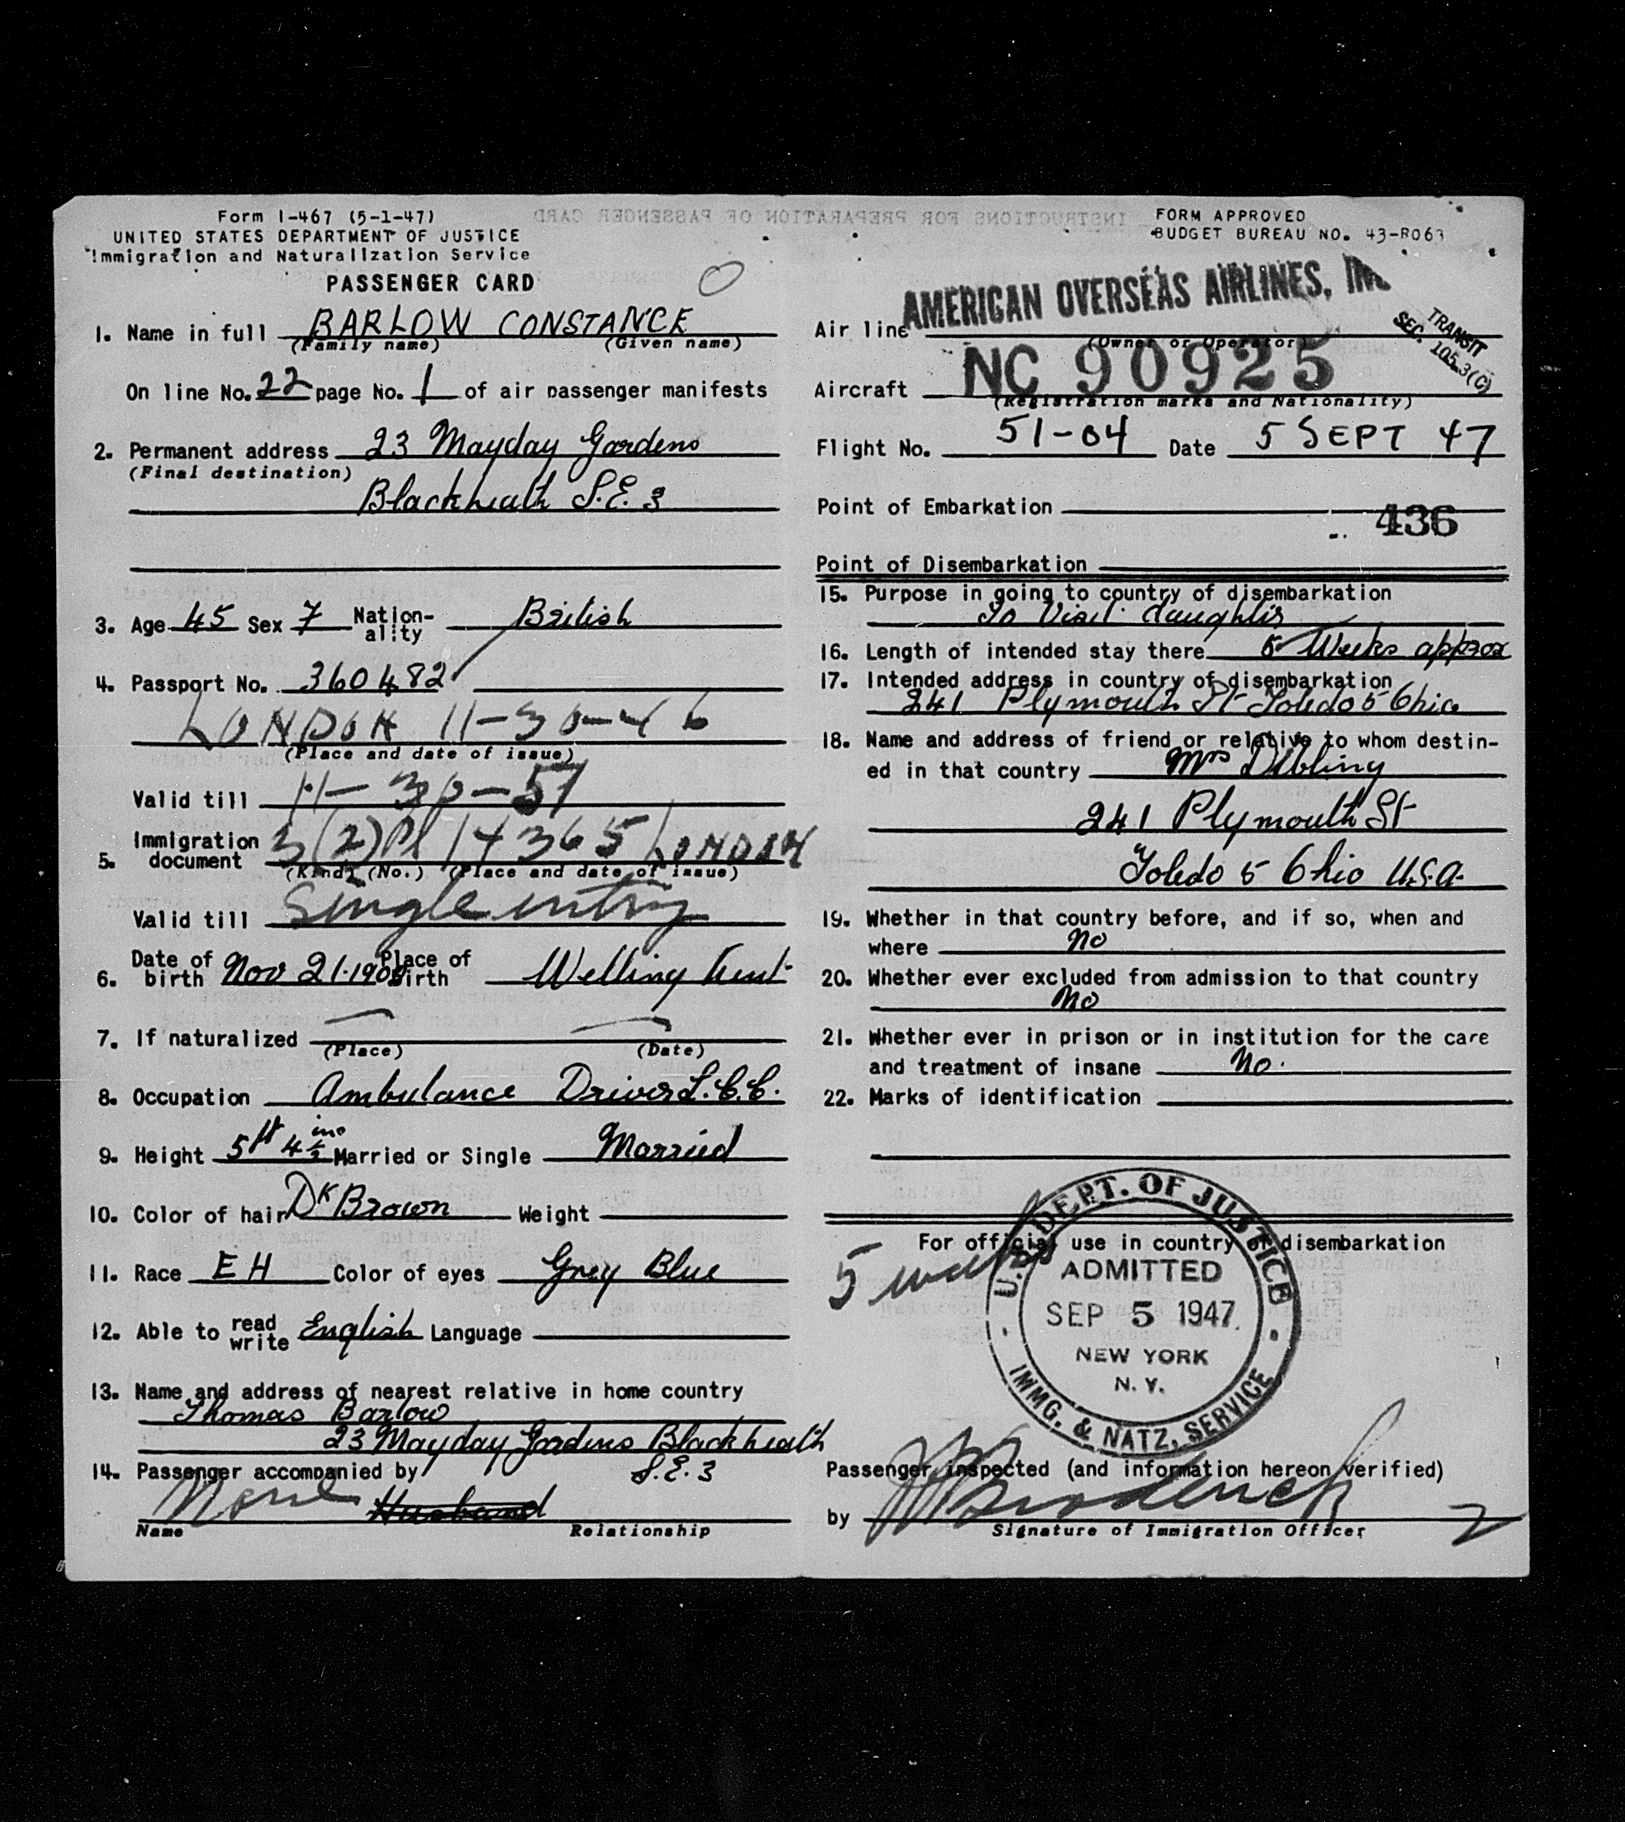 Form I-467 (5-1-47)
UNITED STATES DEPARTMENT OF JUSTICE
Immigration and Naturalization Service
PASSENGER CARD
1. Name in full BARLOW CONSTANCE
(Family name) (Given name)
On line No. 22 page No. 1 of air passenger manifests
2. Permanent address 23 Mayday Gardens
(Final destination)
Blackheath S.E.3
3. Age 45 Sex F Nation-ality British
4. Passport No. 360482
LONDON 11-30-46
(Place and date of issue)
Valid till 11-30-51
5. Immigration document 3(2) PL 14365 LONDON
(Kind) (No.) (Place and date of issue)
Valid till Single entry
6. Date of birth Nov 21. Place of birth Welling Kent
7. If naturalized
(Place) (Date)
8. Occupation Ambulance Driver L.C.C.
9. Height 5ft 4½ ins Married or Single Married
10. Color of hair Dk Brown Weight
11. Race EH Color of eyes Grey Blue
12. Able to read write English Language
13. Name and address of nearest relative in home country
Thomas Barlow
23 Mayday Gardens Blackheath
S.E.3
14. Passenger accompanied by
None Husband
Name Relationship
INSTRUCTIONS FOR PREPARATION OF PASSENGER CARD
FORM APPROVED
BUDGET BUREAU NO. 43-R063
AMERICAN OVERSEAS AIRLINES, INC
Air line
(Owner or Operator)
TRANSIT
SEC. 105.3(C)
Aircraft NC 90925
(Registration marks and Nationality)
Flight No. 51-04 Date 5 SEPT 47
Point of Embarkation
436
Point of Disembarkation
15. Purpose in going to country of disembarkation
To Visit daughter
16. Length of intended stay there 5 Weeks approx
17. Intended address in country of disembarkation
241 Plymouth St Toledo 5 Ohio
18. Name and address of friend or relative to whom destin-
ed in that country Mrs Dibling
241 Plymouth St
Toledo 5 Ohio U.S.A.
19. Whether in that country before, and if so, when and
where no
20. Whether ever excluded from admission to that country
No
21. Whether ever in prison or in institution for the care
and treatment of insane No.
22. Marks of identification
For official use in country of disembarkation
5 weeks
U.S. DEPT. OF JUSTICE
ADMITTED
SEP 5 1947
NEW YORK
N. Y.
IMMG. & NATZ. SERVICE
Passenger inspected (and information hereon verified)
by Broderick
Signature of Immigration Officer